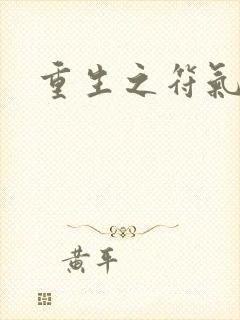 重生之符氣
黃平